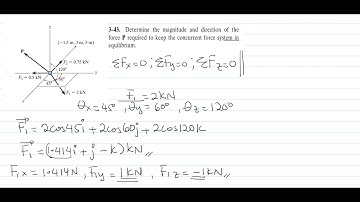 3–43. Determine the magnitude and direction of the
force P required to keep the concurrent force system in
equilibrium.
(–1.5 m, 3 m, 3 m)
P
F₂ = 0.75 kN
120°
F₃ = 0.5 kN
45°
60°
F₁ = 2 kN
ΣFx=0 ; ΣFy=0 ; ΣFz=0
F₁ = 2KN
θx=45°, θy=60°, θz=120°
F₁ = 2cos45i + 2cos60j + 2cos120k
F₁ = (1.414i + j – k) KN
F₁x = 1.0414N, F₁y = 1KN, F₁z = –1KN